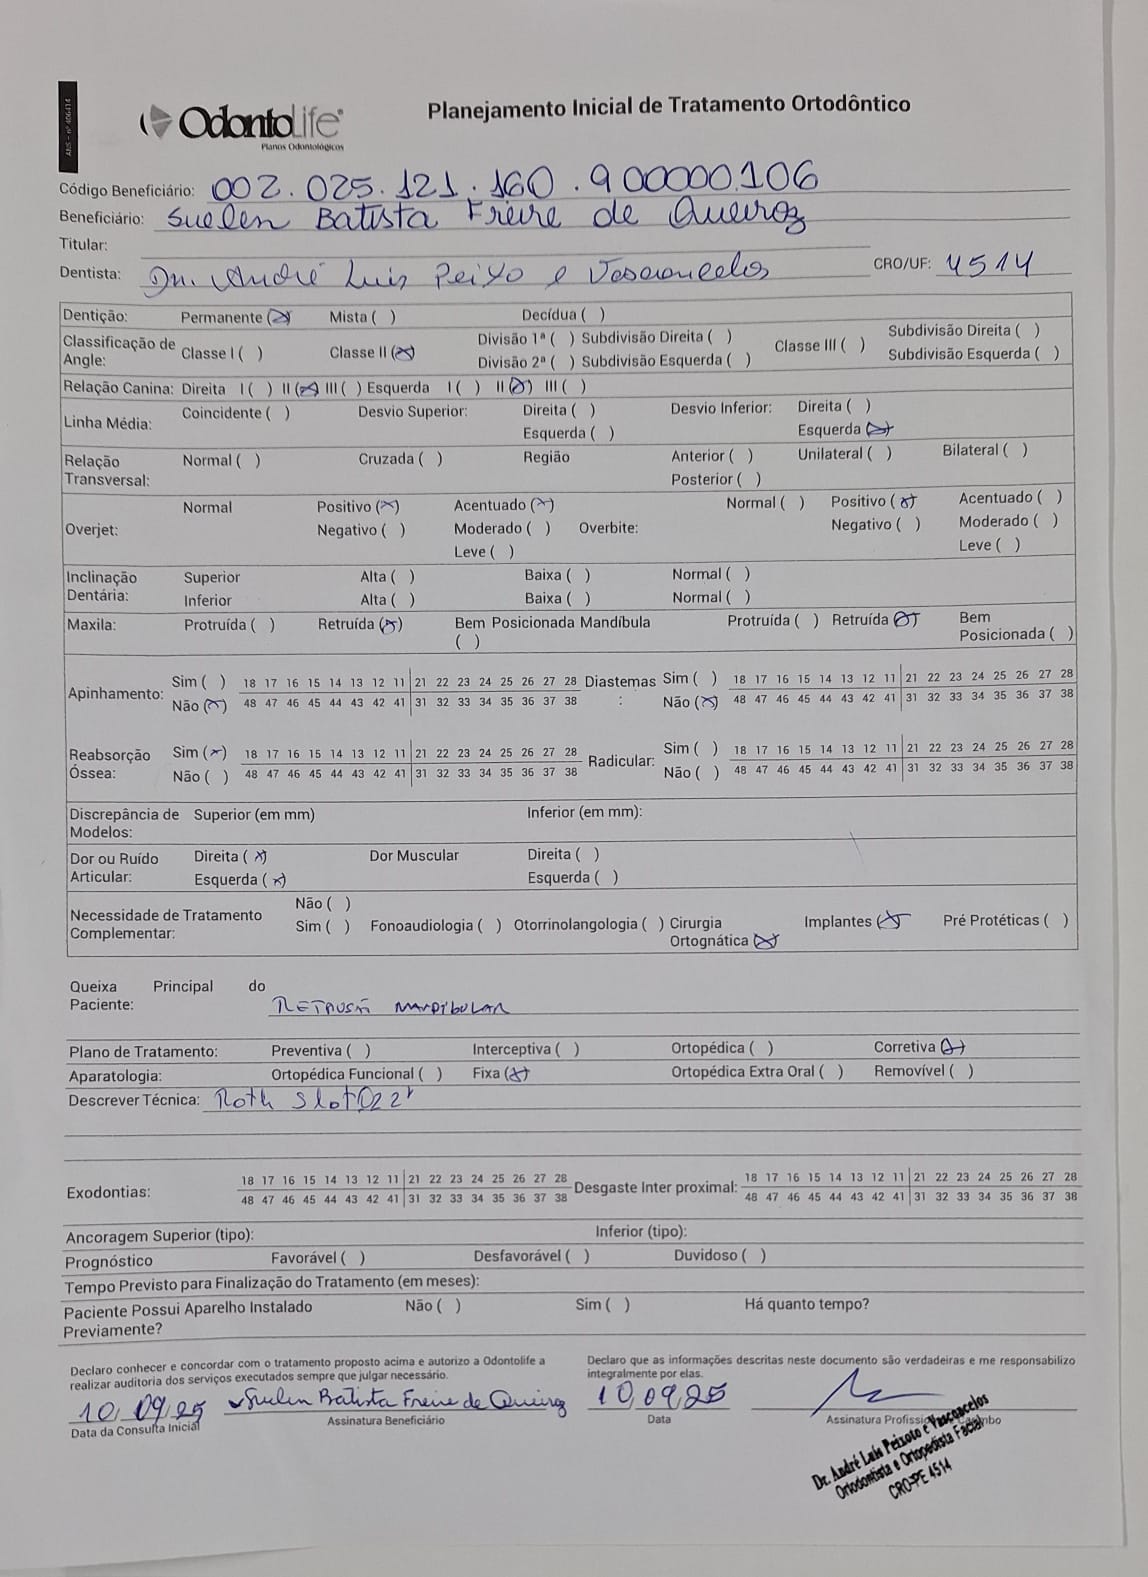 ANS - nº 406414
OdontoLife®
Planos Odontológicos
Planejamento Inicial de Tratamento Ortodôntico
Código Beneficiário: 002.025.121.160.900000.106
Beneficiário: Suelen Batista Freire de Queiroz
Titular:
Dentista: Dr. André Luis Peixo e Vasconcelos CRO/UF: 4514
Dentição: Permanente (X) Mista ( ) Decídua ( )
Classificação de Angle: Classe I ( ) Classe II (X) Divisão 1ª ( ) Subdivisão Direita ( ) Divisão 2ª ( ) Subdivisão Esquerda ( ) Classe III ( ) Subdivisão Direita ( ) Subdivisão Esquerda ( )
Relação Canina: Direita I ( ) II (X) III ( ) Esquerda I ( ) II (X) III ( )
Linha Média: Coincidente ( ) Desvio Superior: Direita ( ) Esquerda ( ) Desvio Inferior: Direita ( ) Esquerda (X)
Relação Transversal: Normal ( ) Cruzada ( ) Região Anterior ( ) Posterior ( ) Unilateral ( ) Bilateral ( )
Overjet: Normal Positivo (X) Negativo ( ) Acentuado (X) Moderado ( ) Leve ( ) Overbite: Normal ( ) Positivo (X) Negativo ( ) Acentuado ( ) Moderado ( ) Leve ( )
Inclinação Dentária: Superior Alta ( ) Baixa ( ) Normal ( )
Inferior Alta ( ) Baixa ( ) Normal ( )
Maxila: Protruída ( ) Retruída (X) Bem Posicionada ( ) Mandíbula Protruída ( ) Retruída (X) Bem Posicionada ( )
Apinhamento: Sim ( ) Não (X) 18 17 16 15 14 13 12 11 21 22 23 24 25 26 27 28 Diastemas: Sim ( ) Não (X) 18 17 16 15 14 13 12 11 21 22 23 24 25 26 27 28
48 47 46 45 44 43 42 41 31 32 33 34 35 36 37 38 48 47 46 45 44 43 42 41 31 32 33 34 35 36 37 38
Reabsorção Óssea: Sim (X) Não ( ) 18 17 16 15 14 13 12 11 21 22 23 24 25 26 27 28 Radicular: Sim ( ) Não ( ) 18 17 16 15 14 13 12 11 21 22 23 24 25 26 27 28
48 47 46 45 44 43 42 41 31 32 33 34 35 36 37 38 48 47 46 45 44 43 42 41 31 32 33 34 35 36 37 38
Discrepância de Modelos: Superior (em mm) Inferior (em mm):
Dor ou Ruído Articular: Direita (X) Esquerda (X) Dor Muscular Direita ( ) Esquerda ( )
Necessidade de Tratamento Complementar: Não ( ) Sim ( ) Fonoaudiologia ( ) Otorrinolangologia ( ) Cirurgia Ortognática (X) Implantes (X) Pré Protéticas ( )
Queixa Principal do Paciente: RETRUSÃ MANDIBULAR
Plano de Tratamento: Preventiva ( ) Interceptiva ( ) Ortopédica ( ) Corretiva (X)
Aparatologia: Ortopédica Funcional ( ) Fixa (X) Ortopédica Extra Oral ( ) Removível ( )
Descrever Técnica: Roth Slot 022"
Exodontias: 18 17 16 15 14 13 12 11 21 22 23 24 25 26 27 28 Desgaste Inter proximal: 18 17 16 15 14 13 12 11 21 22 23 24 25 26 27 28
48 47 46 45 44 43 42 41 31 32 33 34 35 36 37 38 48 47 46 45 44 43 42 41 31 32 33 34 35 36 37 38
Ancoragem Superior (tipo): Inferior (tipo):
Prognóstico Favorável ( ) Desfavorável ( ) Duvidoso ( )
Tempo Previsto para Finalização do Tratamento (em meses):
Paciente Possui Aparelho Instalado Previamente? Não ( ) Sim ( ) Há quanto tempo?
Declaro conhecer e concordar com o tratamento proposto acima e autorizo a Odontolife a
realizar auditoria dos serviços executados sempre que julgar necessário.
Declaro que as informações descritas neste documento são verdadeiras e me responsabilizo
integralmente por elas.
10/09/25 Suelen Batista Freire de Queiroz 10/09/25
Data da Consulta Inicial Assinatura Beneficiário Data Assinatura Profissional Carimbo
Dr. André Luis Peixoto e Vasconcelos
Ortodontista e Ortopedista Facial
CRO-PE 4514